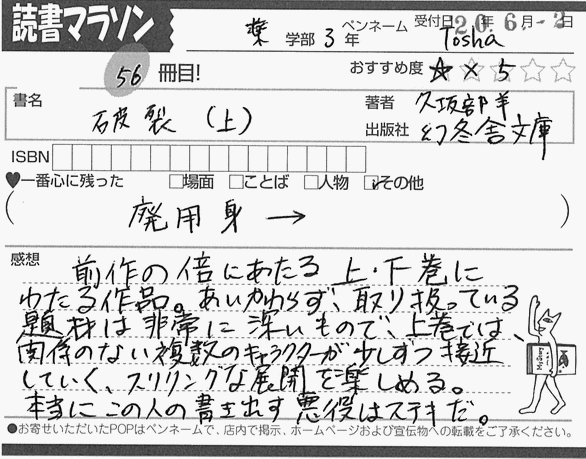 読書マラソン
薬学部 3年 ペンネーム Tosha 受付日20年6月-2日
56冊目!
おすすめ度 ☆×5☆☆
書名 破裂(上)
著者 久坂部羊
出版社 幻冬舎文庫
ISBN
♥一番心に残った □場面 □ことば □人物 ☑その他
( 廃用身→ )
感想
前作の倍にあたる上・下巻に
わたる作品。あいかわらず、取り扱っている
題材は非常に深いもので、上巻では、
関係のない複数のキャラクターが少しずつ接近
していく、スリリングな展開を楽しめる。
本当にこの人の書き出す悪役はステキだ。
●お寄せいただいたPOPはペンネームで、店内で掲示、ホームページおよび宣伝物への転載をご了承ください。